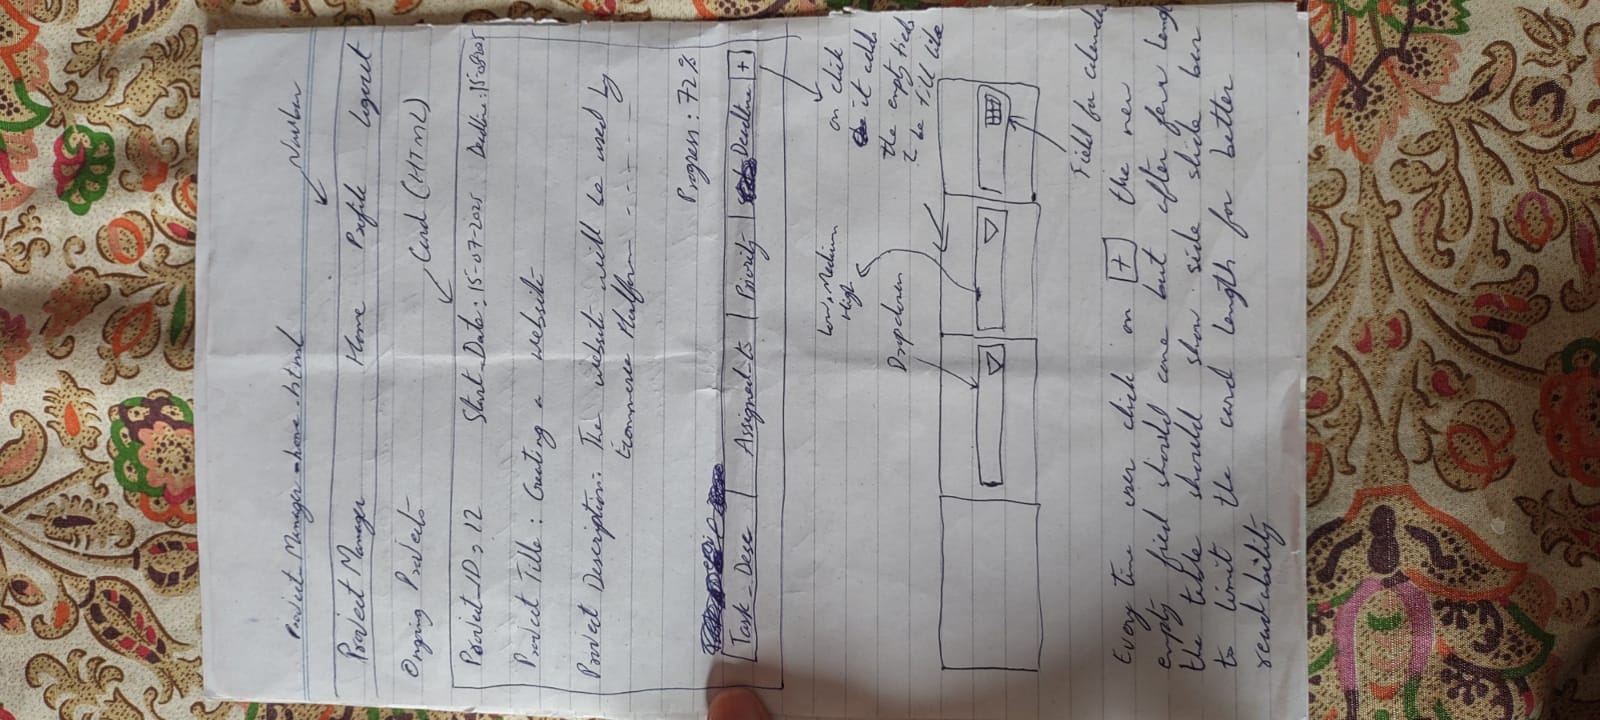 Project Manager-home.html
Navbar
Project Manager Home Profile Logout
Ongoing Projects
Card (HTML)
Project_ID: 12 Start_Date: 15-07-2025 Deadline: 15-08-2025
Project Title: Creating a website
Project Description: The website will be used by
Ecommerse Platform - - - - -
Progress: 72%
Task-Desc Assigned-to Priority Deadline +
on click
it adds
the empty fields
to be fill like
Low, Medium
High
Dropdown
Field for calendar
Every time user click on + the new
empty field should come but after few length
the table should show side slide bar
to limit the card length for better
readability